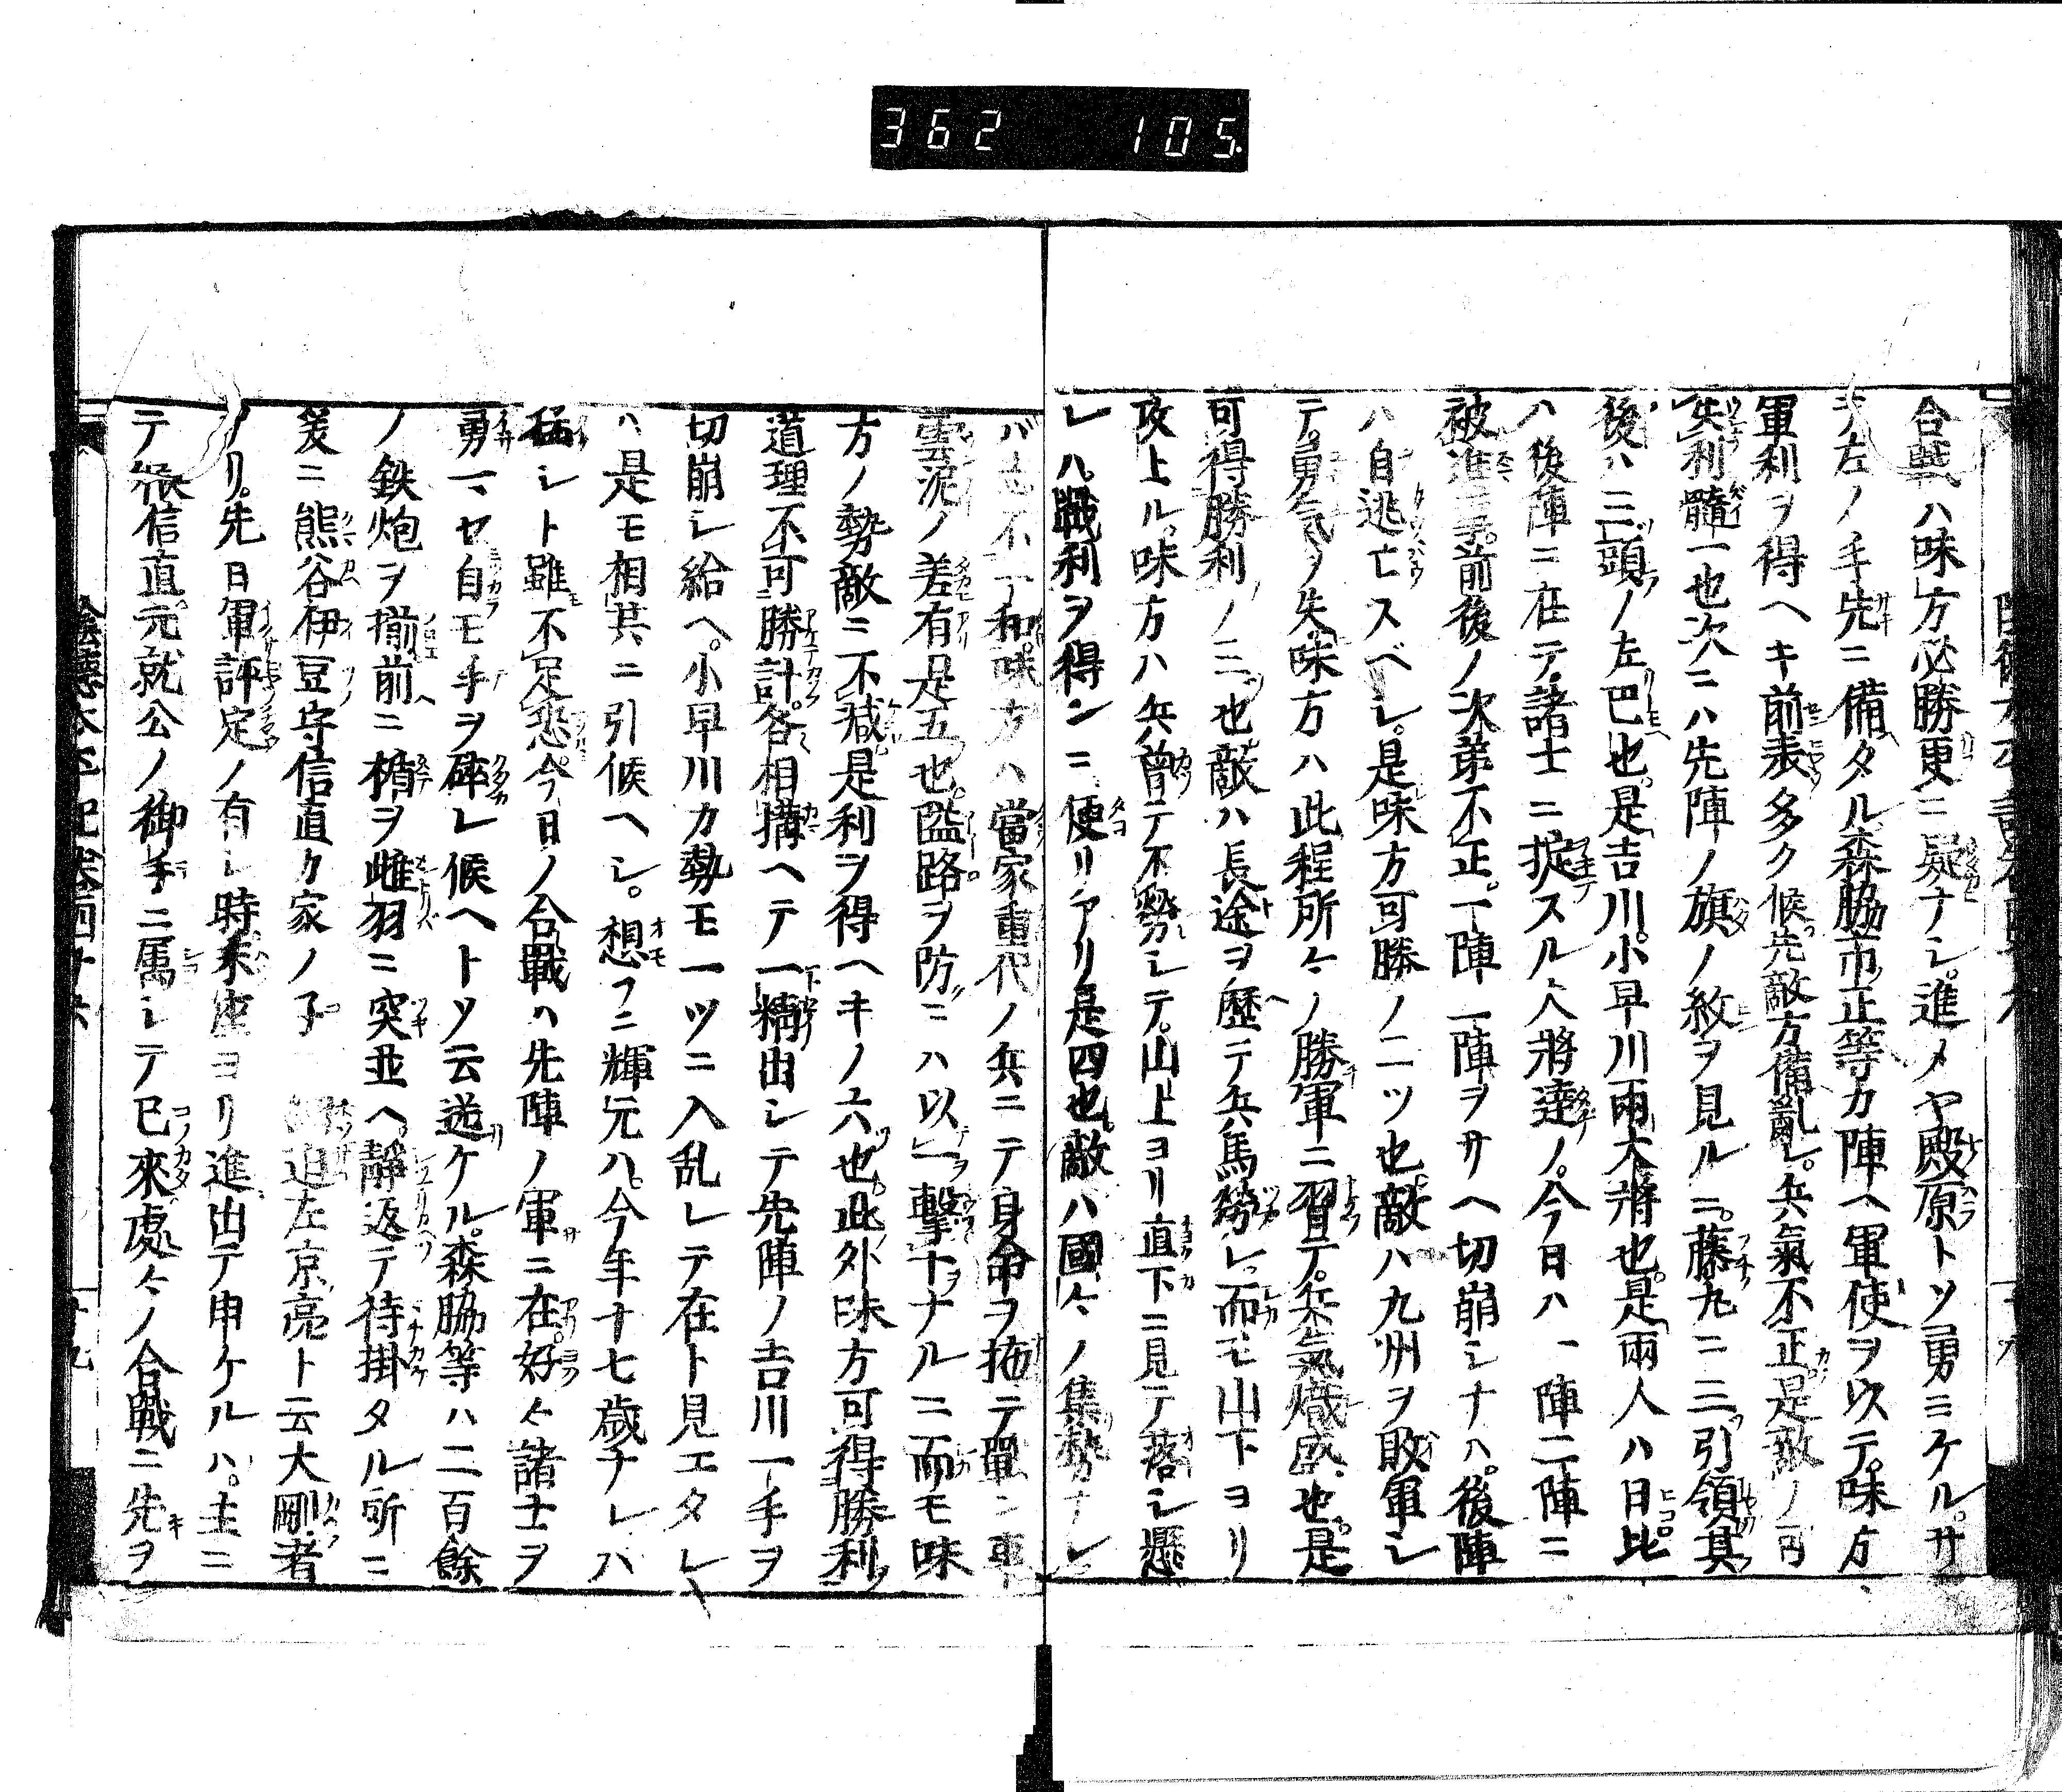 362 105
合戰ハ味方必勝更ニ疑ナシ。進メヤ殿原トソ勇ミケル。サ
テ左ノ手先ニ備タル森脇市正等カ陣ヘ軍使ヲ以テ。味方
軍利ヲ得ヘキ前表多ク候先敵方備亂レ。兵氣不正是敵ノ可
失利髓一也次ニハ先陣ノ旗ノ紋ヲ見ルニ。藤丸ニ三引領其
後ハ三頭ノ左巴也。是吉川。小早川兩大將也。是兩人ハ日比
ハ後陣ニ在テ。諸士ニ掟スル人將達ノ。今日ハ一陣二陣ニ
被進事。前後ノ次第不正。一陣一陣ヲサヘ切崩シナハ。後陣
ハ自逃亡スベシ。是味方可勝ノ二ツ也敵ハ九州ヲ敗軍シ
テ。勇氣ノ失味方ハ此程所々ノ勝軍ニ習テ。兵氣熾盛也。是
可得勝利ノ三也敵ハ長途ヲ歴テ兵馬勞レ。而モ山下ヨリ
攻上ル。味方ハ兵曾テ不勞シテ。山上ヨリ直下ニ見テ落シ懸
レハ。戰利ヲ得ンニ便リアリ是四也敵ハ國々ノ集勢ナレ
バ不和味方ハ當家重代ノ兵ニテ身命ヲ抛テ軍ン事
雲泥ノ差有是五也。隘路ヲ防ニハ以一ヲ擊十ヲナルニ而モ味
方ノ勢敵ニ不減是利ヲ得ヘキノ六也。此外味方可得勝利
道理不可勝計。各相搆ヘテ一精出シテ先陣ノ吉川一手ヲ
切崩シ給ヘ。小早川カ勢モ一ツニ入乱レテ在ト見エタレ
ハ是モ相共ニ引候ヘシ。想フニ輝元ハ。今年十七歳ナレハ
猛シト雖不足恐。今日ノ合戰ハ先陣ノ軍ニ在。好々諸士ヲ
勇マセ自モ手ヲ碎レ候ヘトソ云送ケル。森脇等ハ二百餘
ノ鉄炮ヲ揃前ニ楯ヲ雌羽ニ突並ヘ。靜返テ待掛タル所ニ
爰ニ熊谷伊豆守信直ク家ノ子 迫左京亮ト云大剛者
ノリ。先日軍評定ノ有シ時末座ヨリ進出テ申ケルハ。主ニ
テ候信直。元就公ノ御手ニ属シテ已來處々ノ合戰ニ先ヲ